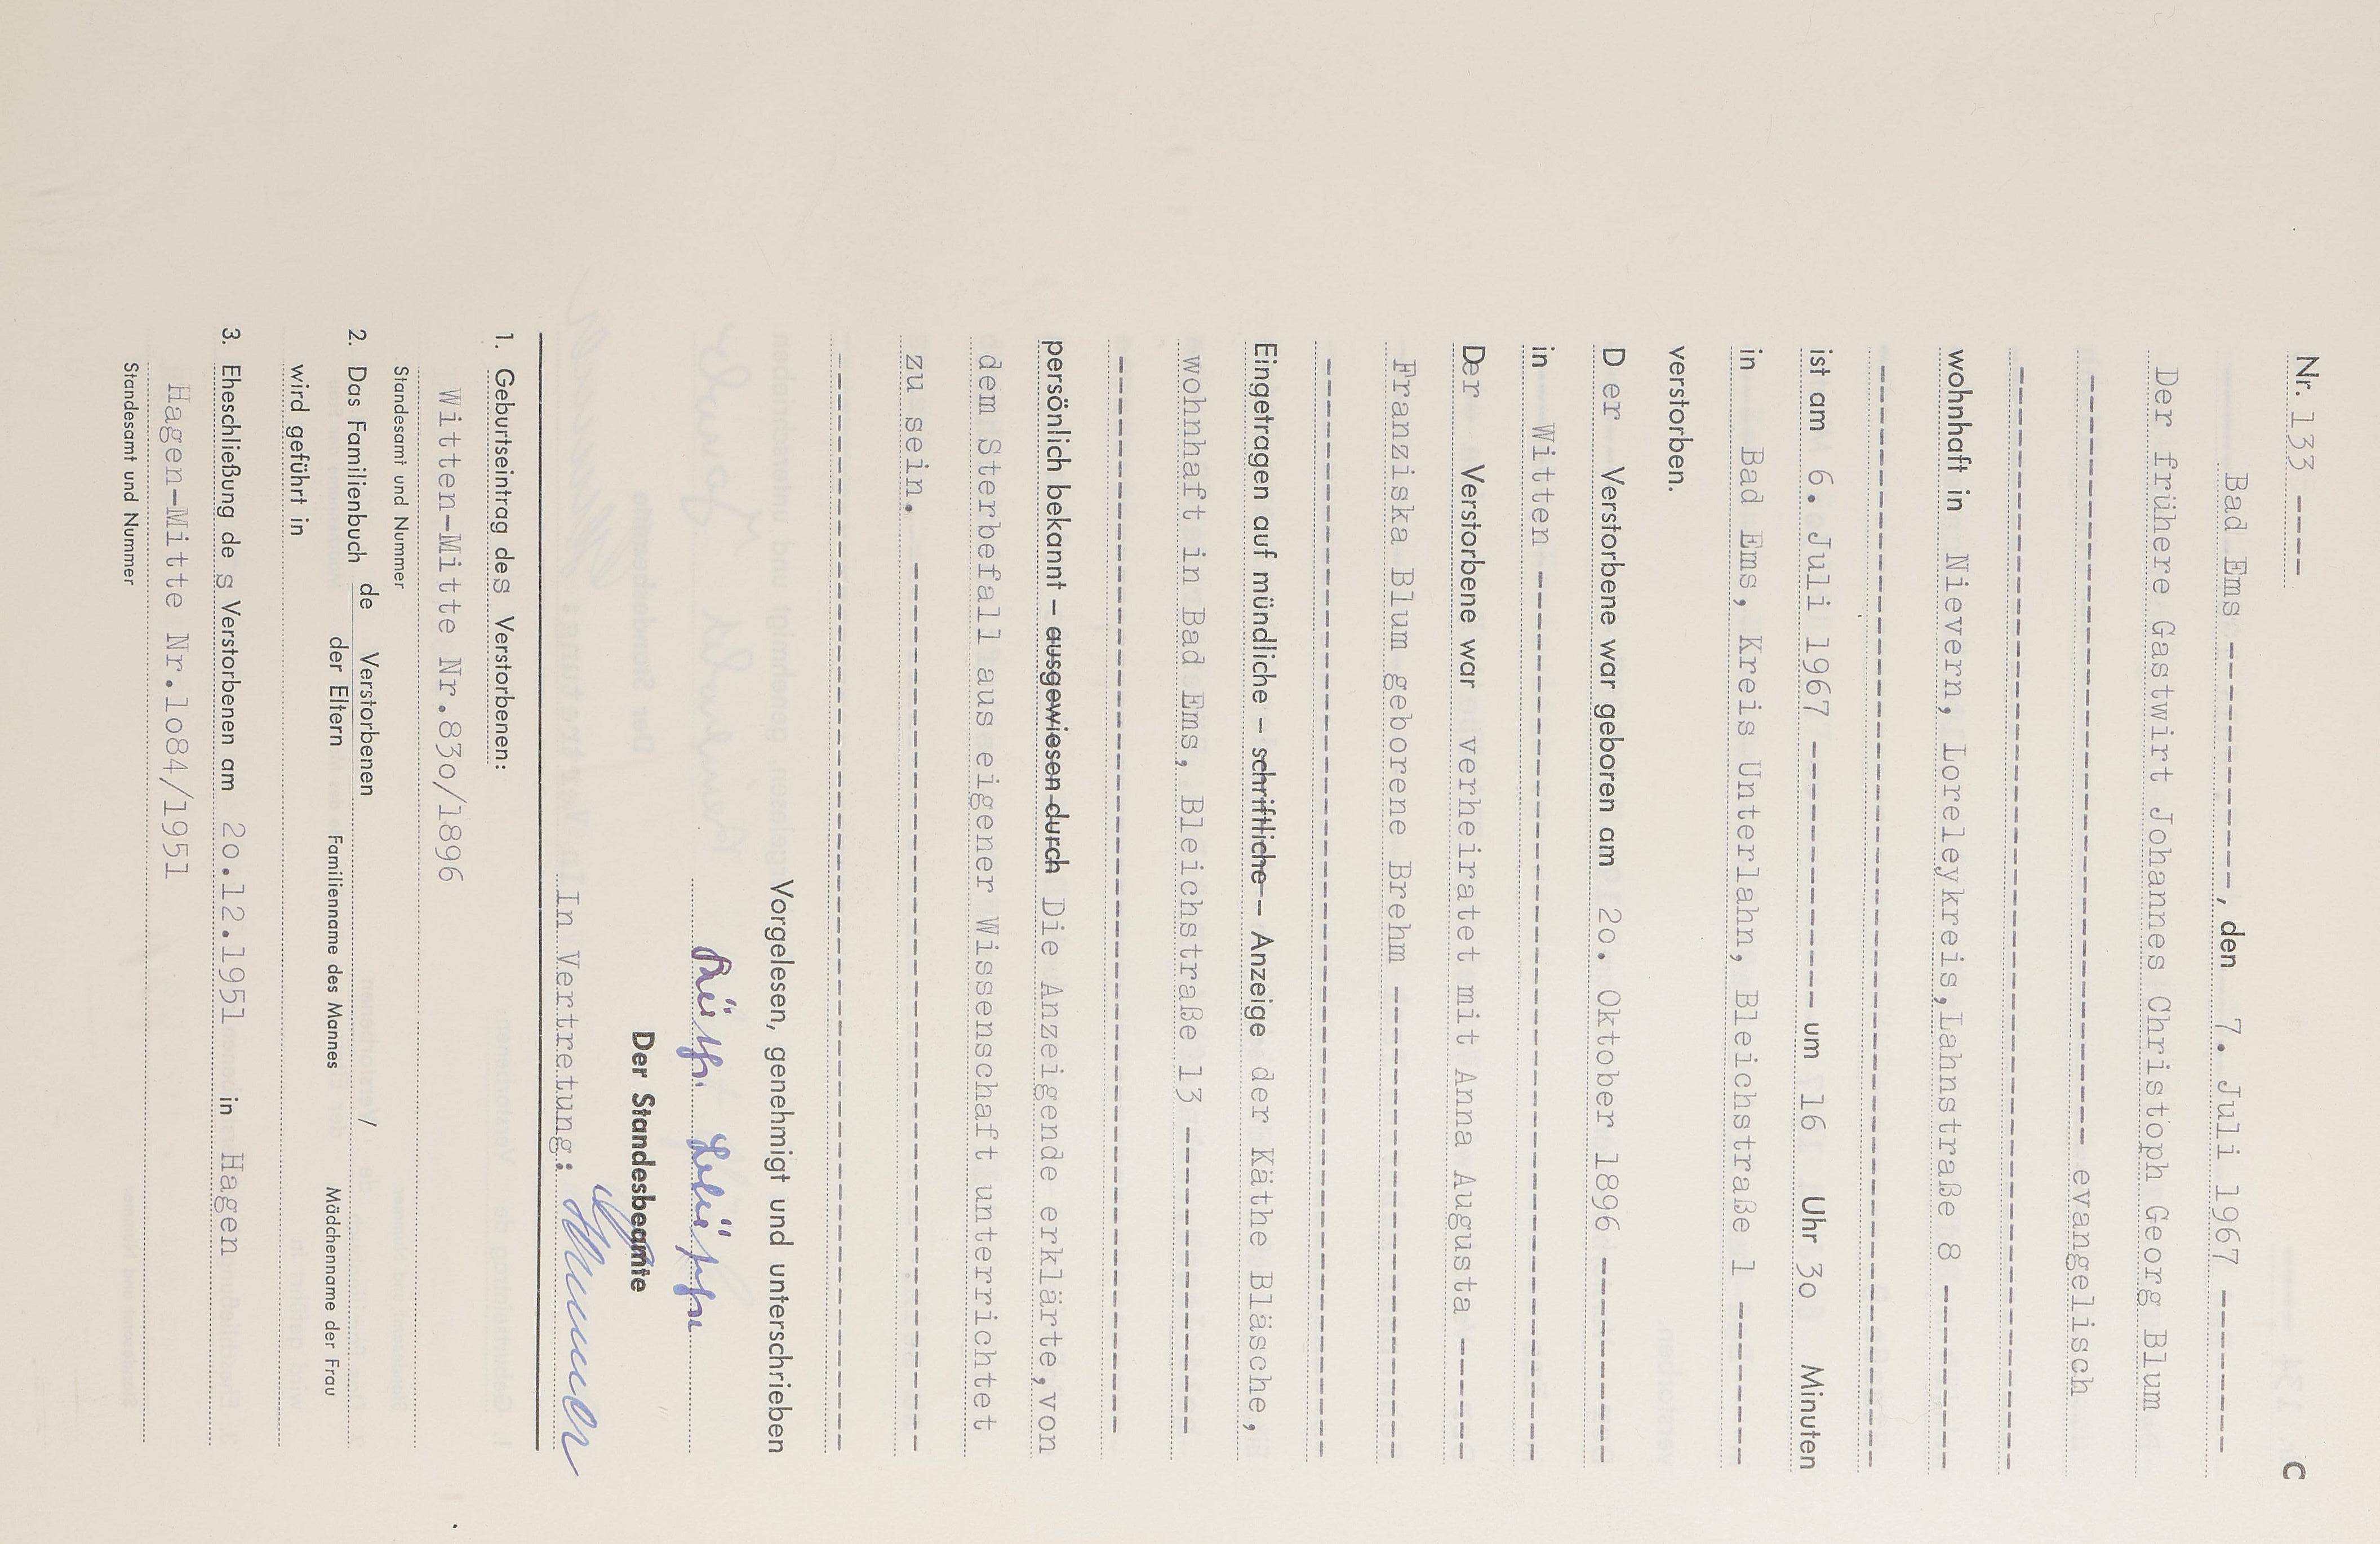 Nr. 133 ----
C
Bad Ems ------------, den 7. Juli 1967 --------
Der frühere Gastwirt Johannes Christoph Georg Blum
---------------------------------- evangelisch
wohnhaft in Nievern, Loreleykreis, Lahnstraße 8 --------
ist am 6. Juli 1967 ------------ um 16 Uhr 3o Minuten
in Bad Ems, Kreis Unterlahn, Bleichstraße 1 -------
verstorben.
D er Verstorbene war geboren am 2o. Oktober 1896 ---------
in Witten ----------------------------------------
Der Verstorbene war verheiratet mit Anna Augusta ------
Franziska Blum geborene Brehm ---------------------
Eingetragen auf mündliche – schriftliche – Anzeige der Käthe Bläsche,
wohnhaft in Bad Ems, Bleichstraße 13 --------------
persönlich bekannt – ausgewiesen durch Die Anzeigende erklärte,von
dem Sterbefall aus eigener Wissenschaft unterrichtet
zu sein. ----------------------------------------
Vorgelesen, genehmigt und unterschrieben
Der Standesbeamte
In Vertretung:
1. Geburtseintrag des Verstorbenen:
Witten-Mitte Nr.83o/1896
Standesamt und Nummer
2. Das Familienbuch de Verstorbenen /
der Eltern Familienname des Mannes Mädchenname der Frau
wird geführt in
3. Eheschließung de s Verstorbenen am 2o.12.1951 in Hagen
Hagen-Mitte Nr.1o84/1951
Standesamt und Nummer